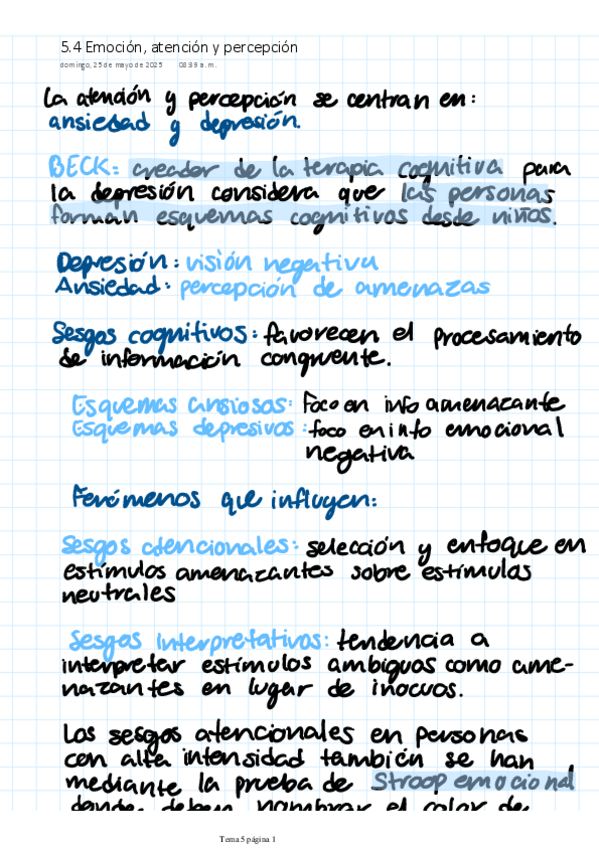 5.4 Emoción, atención y percepción
domingo, 25 de mayo de 2025 08:39 a. m.
La atención y percepción se centran en:
ansiedad y depresión.
BECK: creador de la terapia cognitiva para
la depresión considera que las personas
forman esquemas cognitivos desde niños.
Depresión: visión negativa
Ansiedad: percepción de amenazas
Sesgos cognitivos: favorecen el procesamiento
de información congruente.
Esquemas ansiosos: foco en info amenazante
Esquemas depresivos: foco en info emocional
negativa
Fenómenos que influyen:
Sesgos atencionales: selección y enfoque en
estímulos amenazantes sobre estímulos
neutrales
Sesgos interpretativos: tendencia a
interpretar estímulos ambiguos como ame-
nazantes en lugar de inocuos.
Los sesgos atencionales en personas
con alta intensidad también se han
mediante la prueba de Stroop emocional
donde deben nombrar el color de
Tema 5 página 1